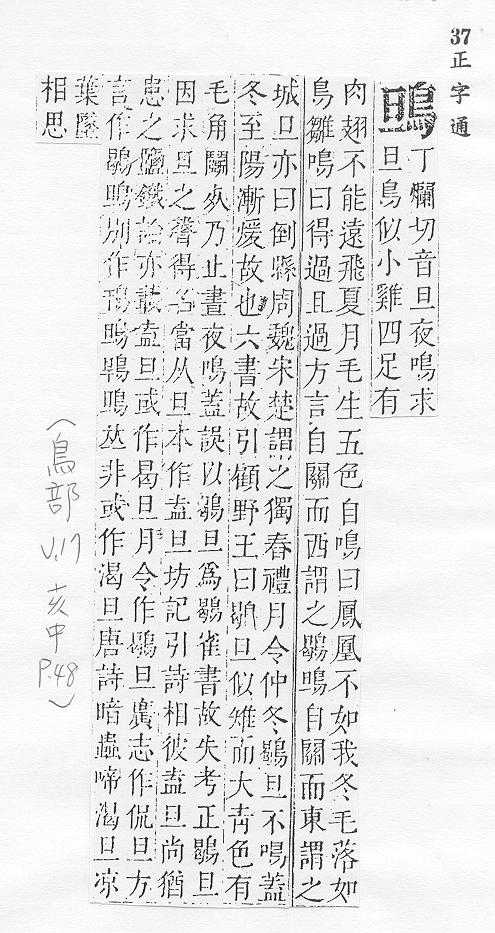 37正字通
鴠
丁爛切音旦夜鳴求
旦鳥似小雞四足有
肉翅不能遠飛夏月毛生五色自鳴曰鳳凰不如我冬毛落如
鳥雛鳴曰得過且過方言自關而西謂之鶡鴠自關而東謂之
城旦亦曰倒縣周魏宋楚謂之獨舂禮月令仲冬鶡旦不鳴蓋
冬至陽漸煖故也六書故引顧野王曰鶡旦似雉而大靑色有
毛角鬭死乃止晝夜鳴蓋誤以鶡旦爲鶡雀書故失考正鶡旦
因求旦之聲得名當从旦本作盍旦坊記引詩相彼盍旦尚猶
患之鹽鐵論亦載盍旦或作曷旦月令作鶡旦廣志作侃旦方
言作鶡鴠別作鴠𪁗鴠𠀤非或作渴旦唐詩暗蟲啼渴旦凉
葉墜
相思
(鳥部
V.17
亥中
P.48)